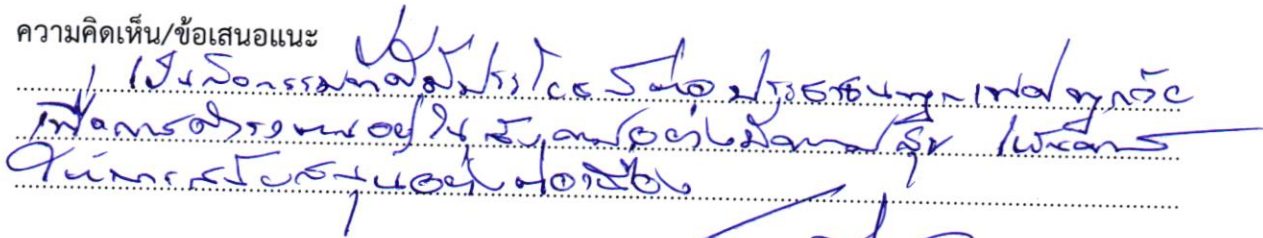 ความคิดเห็น/ข้อเสนอแนะ
เป็นกิจกรรมที่มีประโยชน์ต่อประชาชนทุกเพศทุกวัย
เพื่อการดำรงตนอยู่ในสังคมอย่างมีความสุข เห็นควร
ให้การสนับสนุนอย่างต่อเนื่อง